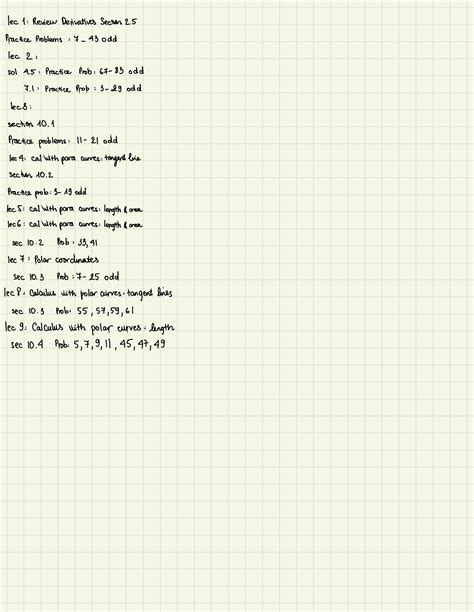 lec 1: Review Derivatives Section 2.5
Practice Problems : 7 - 43 odd
lec 2:
sol 4.5: Practice Prob: 67-83 odd
7.1: Practice Prob : 3-29 odd
lec 3:
section 10.1
Practice problems: 11-21 odd
lec 4: cal with para curves: tangent line
section 10.2
Practice prob: 3-19 odd
lec 5: cal with para curves: length & area
lec 6: cal with para curves: length & area
sec 10.2 Prob: 33,41
lec 7: Polar coordinates
sec 10.3 Prob: 7-25 odd
lec 8: Calculus with polar curves: tangent lines
sec 10.3 Prob: 55,57,59,61
lec 9: Calculus with polar curves: length
sec 10.4 Prob: 5,7,9,11,45,47,49